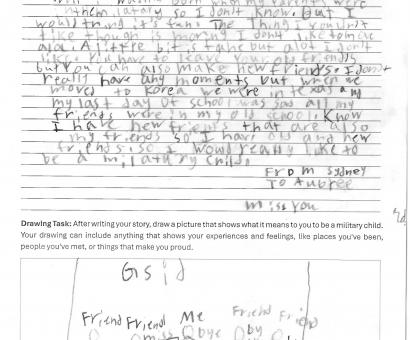 born when my parents were
in them latary so I don't know. But I
would thing it's fun. The Thing I wouldn't
like though is moving I don't like to move
alot. A littre bit is fine but alot I don't
like. You have to leave your old friends
but you can also make new friends. I don't
really have any moments but when we
moved to Korea we were in texas and
my last day of school was sad all my
friends were in my old school. Know
I have new friends that are also
my friends so I have old and new
friends. so I would really like to
be a milatury child.
From Sydney
To Aubree
miss you
Drawing Task: After writing your story, draw a picture that shows what it means to you to be a military child.
Your drawing can include anything that shows your experiences and feelings, like places you've been,
people you've met, or things that make you proud.
Friend Friend Me Friend Friend
bye by